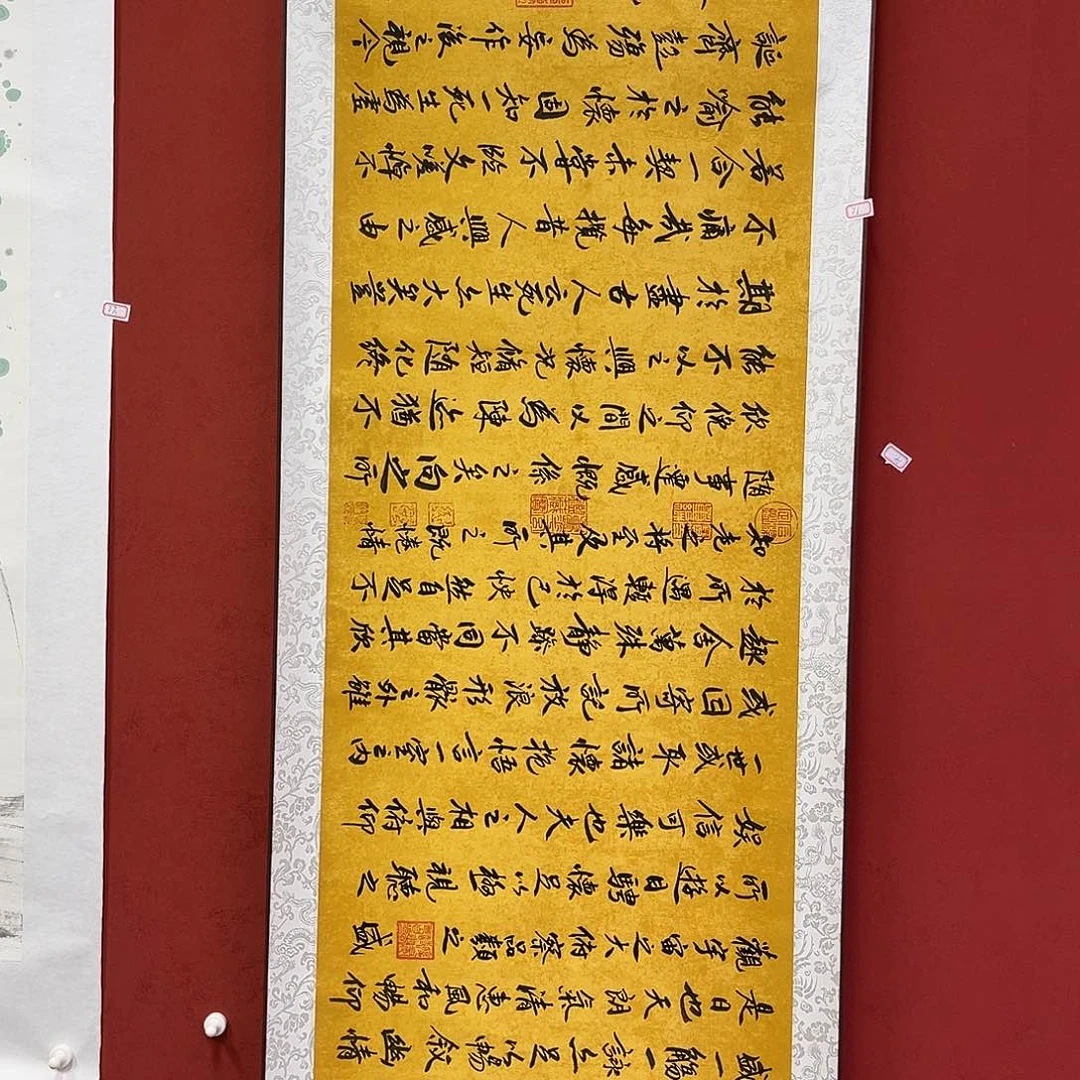 盛一觴一詠亦足以暢敘幽情
是日也天朗氣清惠風和暢仰
觀宇宙之大俯察品類之盛
所以遊目騁懷足以極視聽之
娛信可樂也夫人之相與俯仰
一世或取諸懷抱悟言一室之內
或因寄所託放浪形骸之外雖
趣舍萬殊靜躁不同當其欣
於所遇輒得於己快然自足不
知老之將至及其所之既惓情
隨事遷感慨係之矣向之所
欣俛仰之間以為陳迹猶不
能不以之興懷況脩短隨化終
期於盡古人云死生亦大矣豈
不痛哉每攬昔人興感之由
若合一契未嘗不臨文嗟悼不
能喻之於懷固知一死生為虛
誕齊彭殤為妄作後之視今